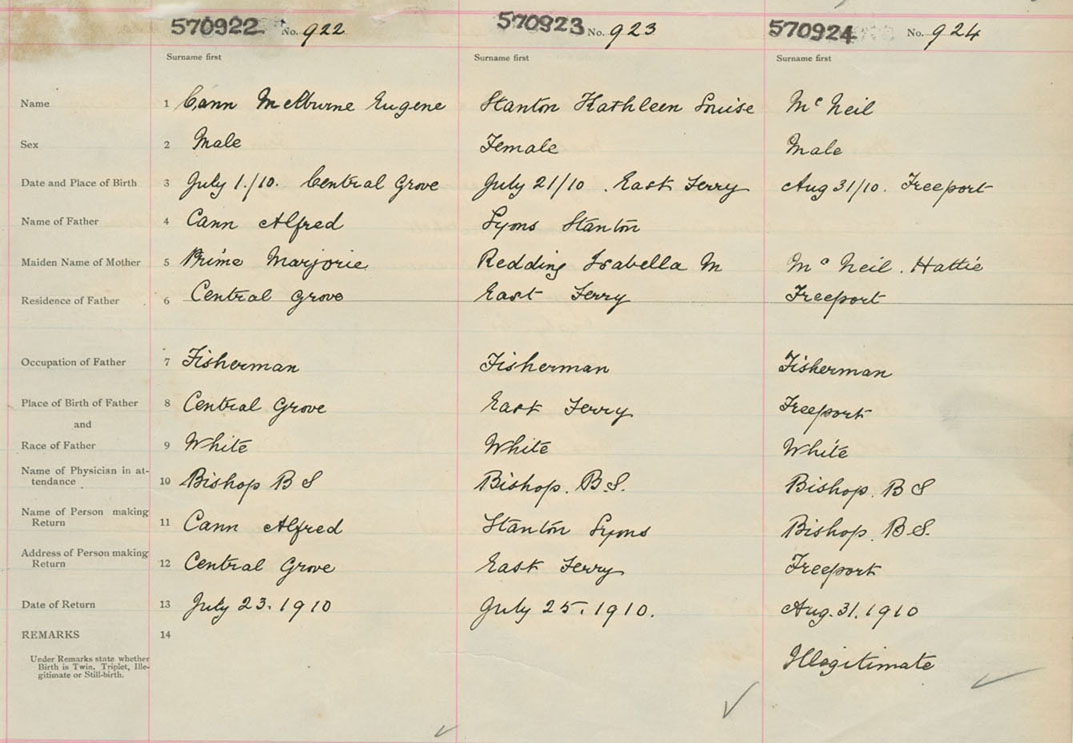 570922 No. 922 570923 No. 923 570924 No. 924
Surname first Surname first Surname first
Name 1 Cann Melburne Eugene Stanton Kathleen Louise Mc Neil
Sex 2 Male Female Male
Date and Place of Birth 3 July 1./10. Central Grove July 21/10. East Ferry Aug 31/10. Freeport
Name of Father 4 Cann Alfred Lyons Stanton
Maiden Name of Mother 5 Prime Marjorie Redding Isabella M Mc Neil. Hattie
Residence of Father 6 Central Grove East Ferry Freeport
Occupation of Father 7 Fisherman Fisherman Fisherman
Place of Birth of Father 8 Central Grove East Ferry Freeport
and
Race of Father 9 White White White
Name of Physician in at-
tendance 10 Bishop B S Bishop. B.S. Bishop. B S
Name of Person making
Return 11 Cann Alfred Stanton Lyons Bishop. B S.
Address of Person making
Return 12 Central Grove East Ferry Freeport
Date of Return 13 July 23. 1910 July 25. 1910. Aug. 31. 1910
REMARKS 14
Under Remarks state whether
Birth is Twin, Triplet, Ille-
gitimate or Still-birth.
Illegitimate